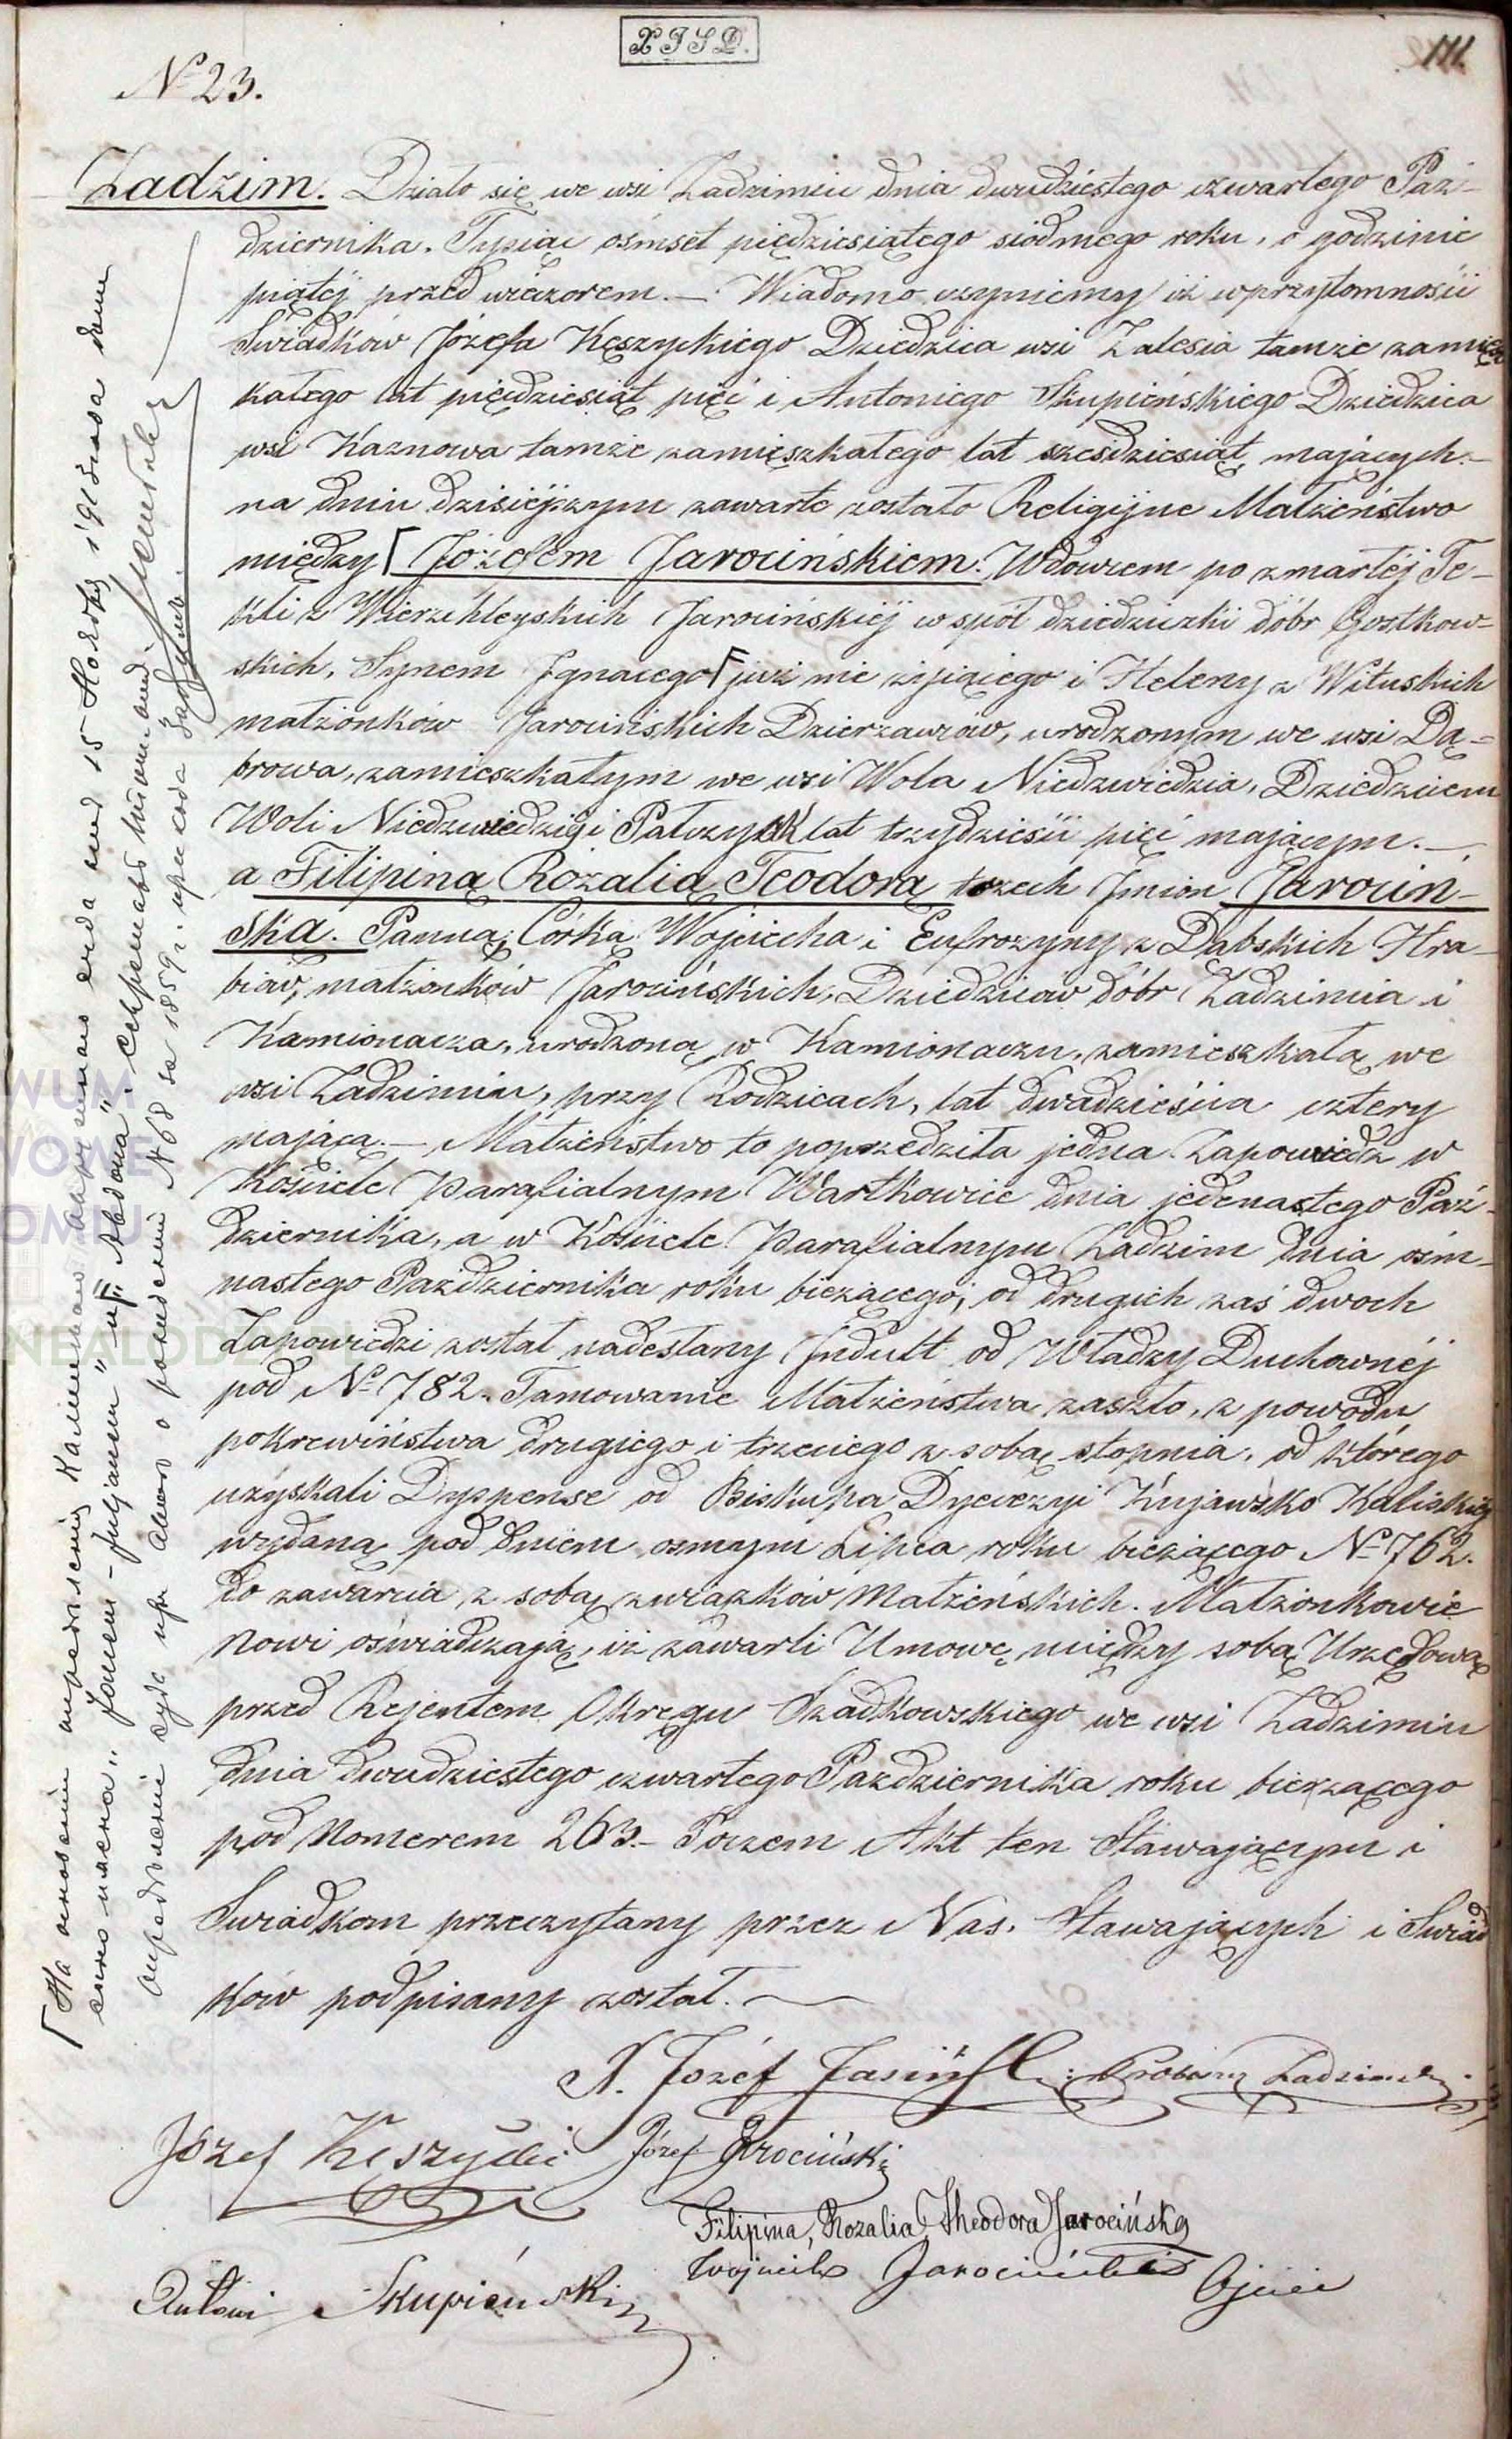 X J S D.
111.
№ 23.
Zadzim. Działo się we wsi Zadzimiu dnia dwudziestego czwartego Paź-
dziernika. Tysiąc ośmset pięćdziesiątego siódmego roku, o godzinie
piątéj przed wieczorem. — Wiadomo czyniemy iż w przytomności
Świadków Józefa Kęszyckiego Dziedzica wsi Zalesia tamże zamiesz
kałego lat pięćdziesiąt pięć i Antoniego Skupieńskiego Dziedzica
wsi Kaznowa tamże zamieszkałego lat sześćdziesiąt, mających. —
na dniu dzisiéjszym zawarte zostało Religijne Małżeństwo
między Józefem Jarocińskiem. Wdowcem po zmarłéj Te-
kli z Wierzchleyskich Jarocińskiéj współ dziedziczki dóbr Gostkow-
skich, Synem Ignacego już nie żyjącego i Heleny z Wituskich
małżonków Jarocińskich Dzierżawców, urodzonym we wsi Dą-
browa, zamieszkałym we wsi Wola Niedzwiedzia, Dziedzicem
Woli Niedzwiedzigi Pałczysk lat trzydzieści pięć mającym. —
a Filipiną Rozalią Teodorą trzech Imion Jarociń-
ską. Panną, Córką Wojciecha i Eufrozyny z Dąbskich Hra-
biów, małżonków Jarocińskich, Dziedziców dóbr Zadzimia i
Kamionacza, urodzoną w Kamionaczu, zamieszkałą we
wsi Zadzimiu, przy Rodzicach, lat dwadzieścia cztery
mającą. — Małżeństwo to poprzedziła jedna Zapowiedz w
Kościele Parafialnym Wartkowice dnia jedenastego Paź-
dziernika, a w Kościele Parafialnym Zadzim dnia ośm-
nastego Października roku bieżącego, od drugich zaś dwoch
Zapowiedzi został nadesłany Indult od Władzy Duchownéj
pod № 782. Tamowanie Małżeństwa zaszło, z powodu
pokrewiństwa drugiego i trzeciego z sobą stopnia, od którego
uzyskali Dyspense od Biskupa Dyecezyi Kujawsko Kaliskiéj
wydaną pod dniem osmym Lipca roku bieżącego № 762.
do zawarcia z sobą związków Małżeńskich. Małżonkowie
Nowi oświadczają, iż zawarli Umowę między sobą Urzędową
przed Rejentem Okręgu Szadkowskiego we wsi Zadzimiu
dnia dwudziestego czwartego Pazdziernika roku bieżącego
pod Nomerem 263. — Poczem Akt ten Stawającym i
Swiadkom przeczytany przez Nas, Stawających i Swiad
ków podpisany został. —
X. Józéf Jasiński: Proboszcz Zadzimski
Józef Kęszycki Józef Jrociński
Filipina, Rozalia, Theodora Jarocińska
Wojciech Jarociński Ojciec
Antoni Skupieński
На основании определения Калишскаго окружнаго суда от 15 Ноября 1910 года
имена "Юлиан" и "Авдона". Секретарь
определении суда при акте о рождении № 68 за 1859 г. прихода Задзим.
WUM
WOWE
OMIU
NEALODZY.PL